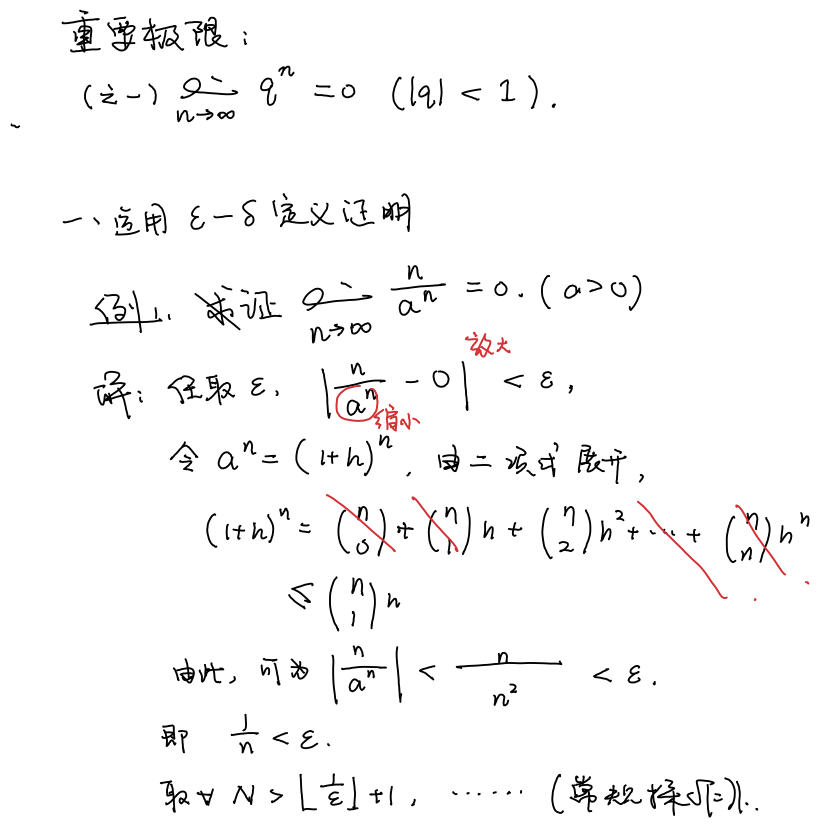 重要极限：
(之一) lim n→∞ qⁿ = 0 (|q| < 1).
一、运用 ε-δ 定义证明
例1. 求证 lim n→∞ n/aⁿ = 0. (a>0)
放大
解：任取 ε, |n/aⁿ - 0| < ε,
缩小
令 aⁿ = (1+h)ⁿ, 由二项式展开,
(1+h)ⁿ = (n 0) + (n 1)h + (n 2)h² + … + (n n)hⁿ
≤ (n 1)h
由此, 可为 |n/aⁿ| < n/n² < ε.
即 1/n < ε.
取 ∀ N > ⌊1/ε⌋+1, …… (常规操作)..